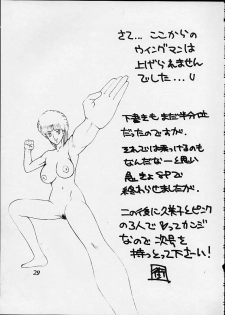 さて… ここからの
ウイングマンは
上げられませんで
でした…U
下書きも まだ半分位
だったのですが、
それでは乗っけるのも
なんだなーと思い
急きょ
終わらせましたが、
この後に久美子とピンク
の3人で
なので 次号を
待っとって下さーい!
29